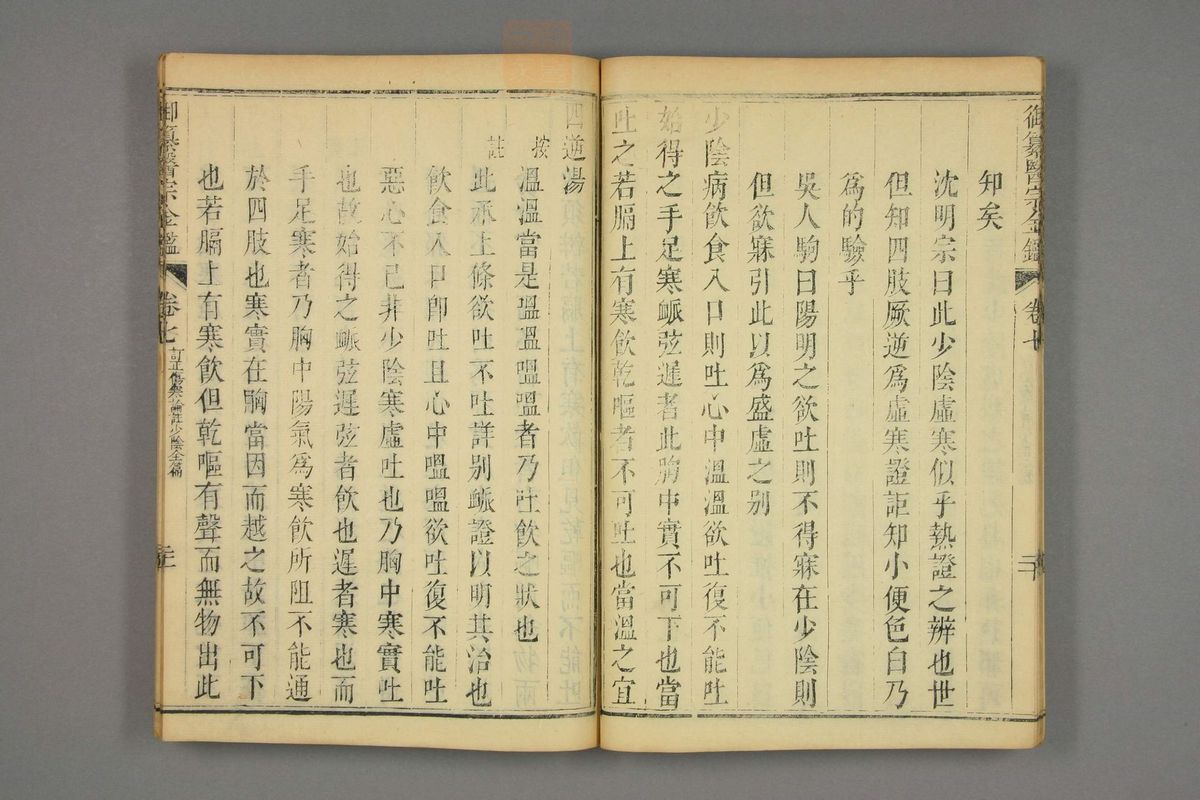 御纂醫宗金鑑 卷七
知矣
沈明宗曰此少陰虛寒似乎熱證之辨也世
但知四肢厥逆爲虛寒證詎知小便色白乃
爲的驗乎
吳人駒曰陽明之欲吐則不得寐在少陰則
但欲寐引此以爲盛虛之別
少陰病飲食入口則吐心中溫溫欲吐復不能吐
始得之手足寒脈弦遲者此胸中實不可下也當
吐之若膈上有寒飲乾嘔者不可吐也當溫之宜
四逆湯
按 溫溫當是嗢嗢嗢嗢者乃吐飲之狀也
註 此承上條欲吐不吐詳別脈證以明其治也
飲食入口卽吐且心中嗢嗢欲吐復不能吐
惡心不已非少陰寒虛吐也乃胸中寒實吐
也故始得之脈弦遲弦者飲也遲者寒也而
手足寒者乃胸中陽氣爲寒飲所阻不能通
於四肢也寒實在胸當因而越之故不可下
也若膈上有寒飲但乾嘔有聲而無物出此
御纂醫宗金鑑 卷七 訂正傷寒論註少陰全篇